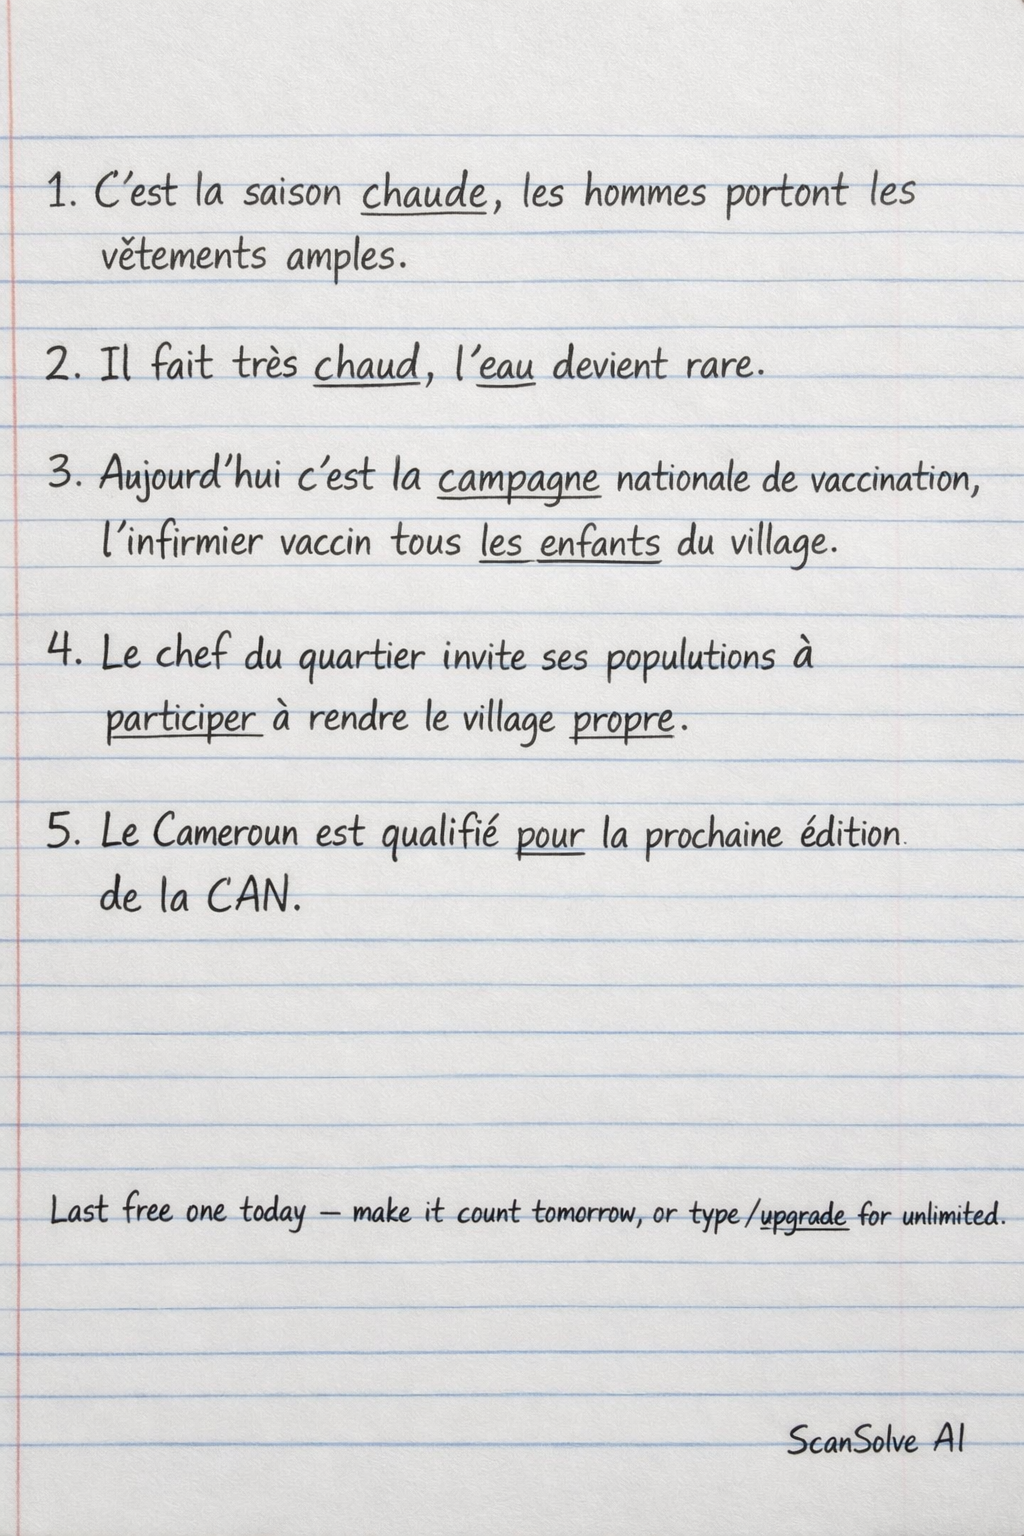 1. C'est la saison chaude, les hommes portont les
větements amples.
2. Il fait très chaud, l'eau devient rare.
3. Aujourd'hui c'est la campagne nationale de vaccination,
l'infirmier vaccin tous les enfants du village.
4. Le chef du quartier invite ses populutions à
participer à rendre le village propre.
5. Le Cameroun est qualifié pour la prochaine édition.
de la CAN.
Last free one today — make it count tomorrow, or type /upgrade for unlimited.
ScanSolve AI